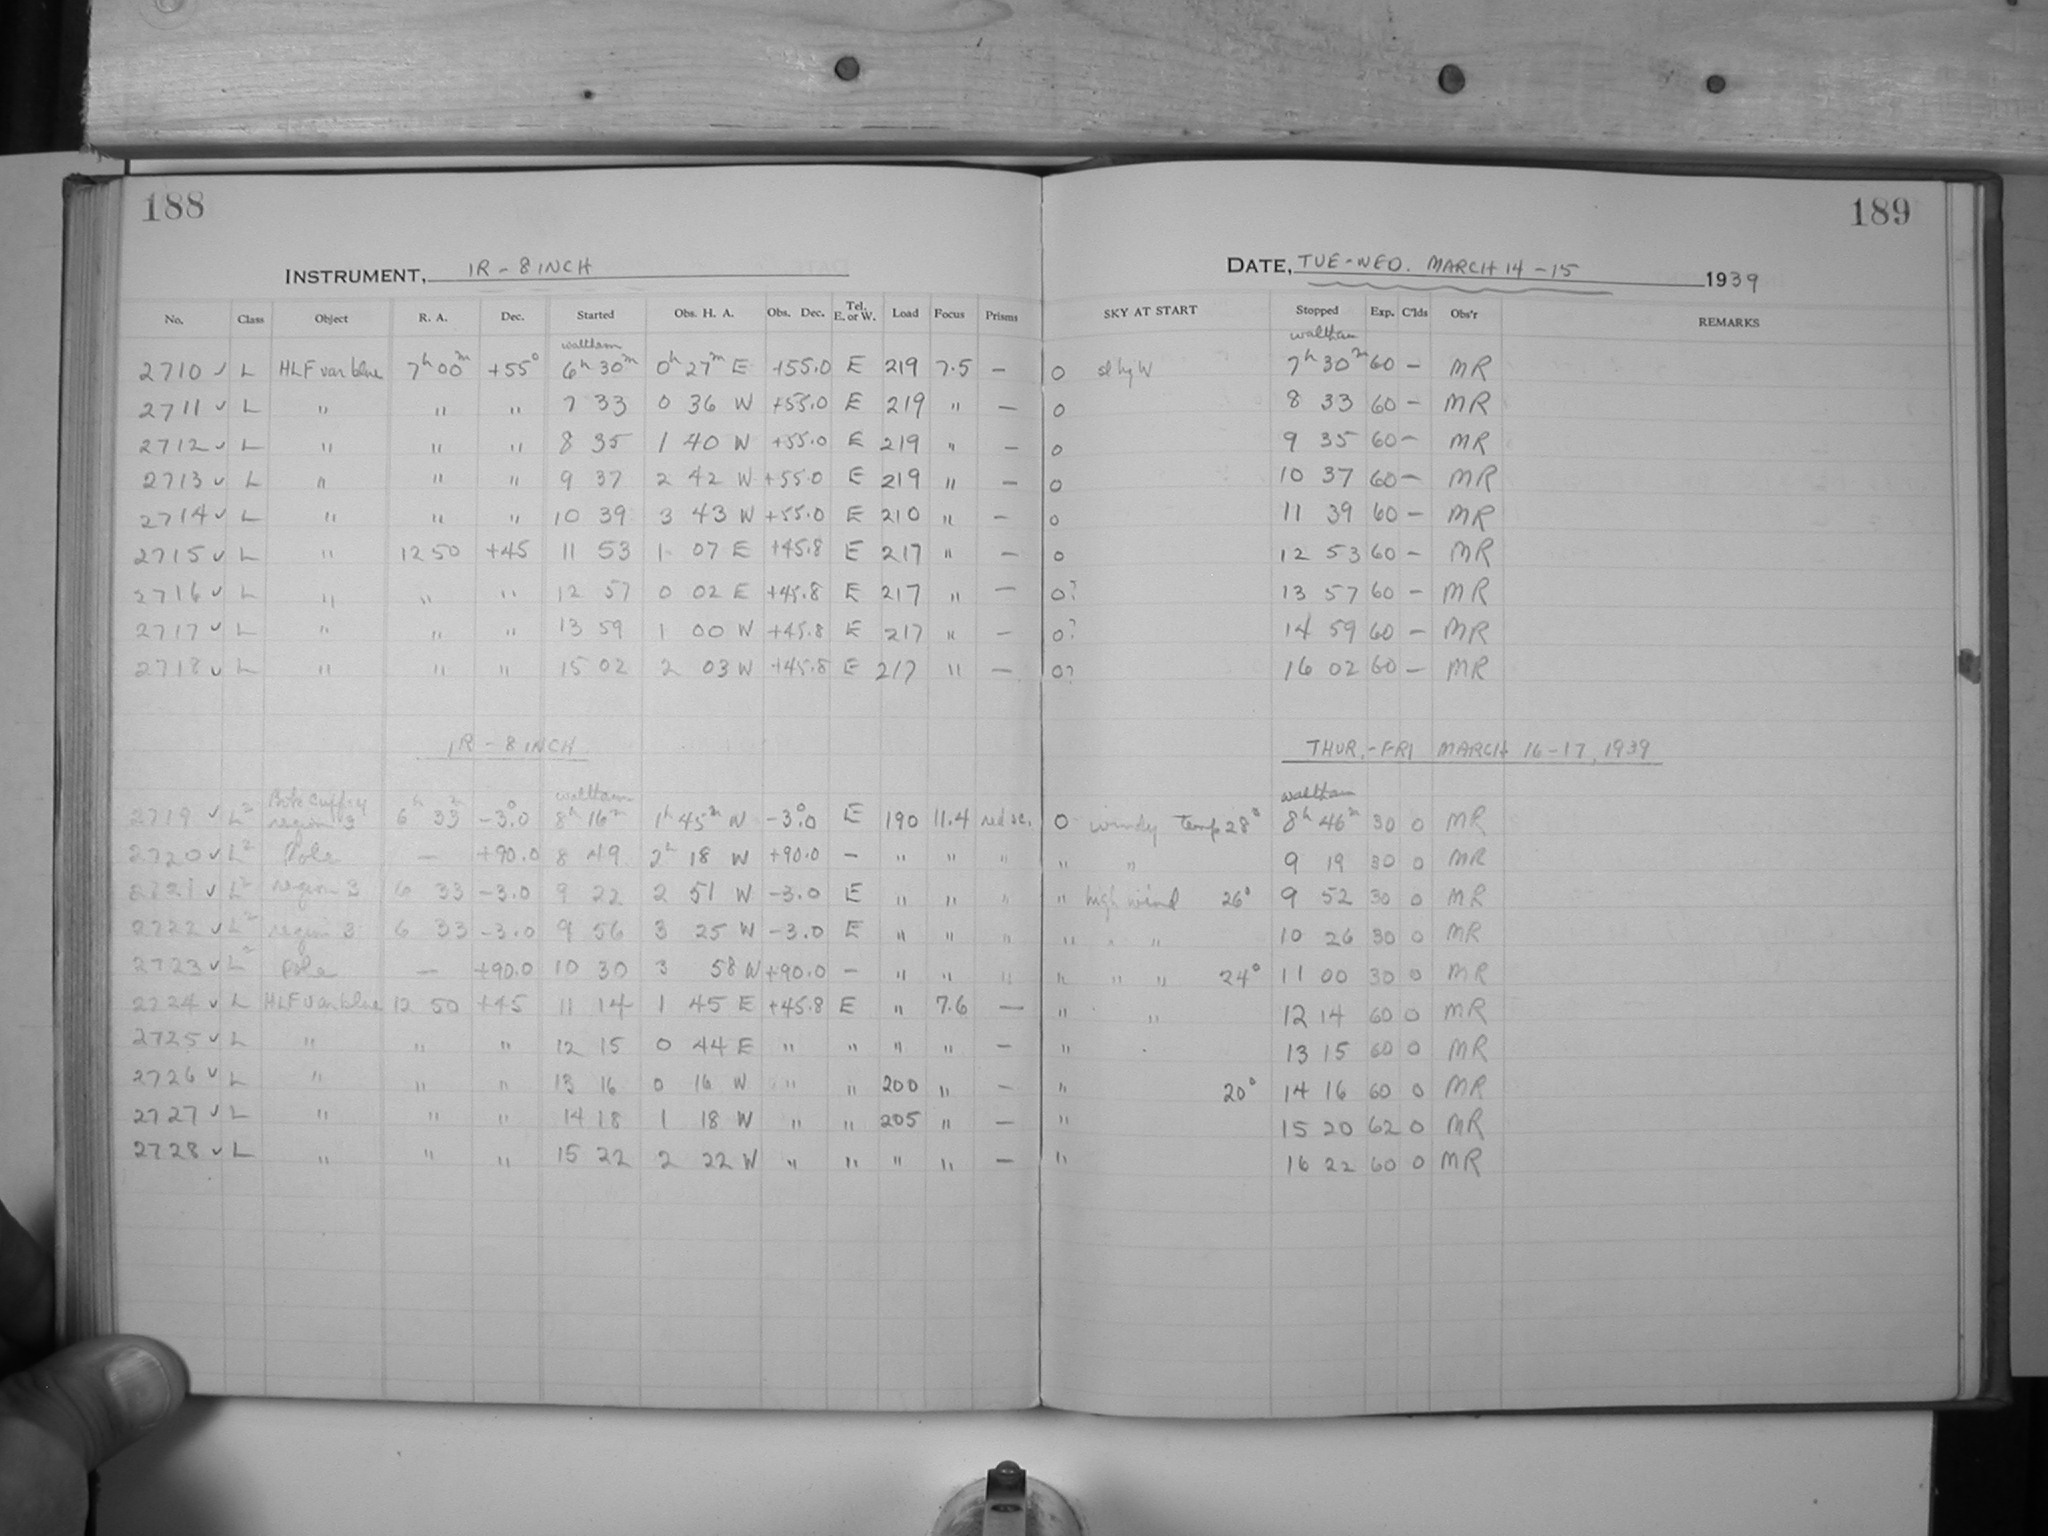 188
INSTRUMENT, IR - 8 INCH
No. Class Object R. A. Dec. Started Obs. H. A. Obs. Dec. Tel. E. or W. Load Focus Prisms
Waltham
2710 ✓ L HLF var blue 7h 00m +55° 6h 30m 0h 27m E +55.0 E 219 7.5 —
2711 ✓ L " " " 7 33 0 36 W +55.0 E 219 " —
2712 ✓ L " " " 8 35 1 40 W +55.0 E 219 " —
2713 ✓ L " " " 9 37 2 42 W +55.0 E 219 " —
2714 ✓ L " " " 10 39 3 43 W +55.0 E 210 " —
2715 ✓ L " 12 50 +45 11 53 1 07 E +45.8 E 217 " —
2716 ✓ L " " " 12 57 0 02 E +45.8 E 217 " —
2717 ✓ L " " " 13 59 1 00 W +45.8 E 217 " —
2718 ✓ L " " " 15 02 2 03 W +45.8 E 217 " —
IR - 8 INCH
Waltham
2719 ✓ L2 region 3 6h 33m -3°.0 8h 16m 1h 45m W -3°.0 E 190 11.4 red sc.
2720 ✓ L2 Pole — +90.0 8 49 2h 18 W +90.0 — " " "
2721 ✓ L2 region 3 6 33 -3.0 9 22 2 51 W -3.0 E " " "
2722 ✓ L2 region 3 6 33 -3.0 9 56 3 25 W -3.0 E " " "
2723 ✓ L2 Pole — +90.0 10 30 3 58 W +90.0 — " " "
2724 ✓ L HLF var blue 12 50 +45 11 14 1 45 E +45.8 E " 7.6 —
2725 ✓ L " " " 12 15 0 44 E " " " " —
2726 ✓ L " " " 13 16 0 16 W " " 200 " —
2727 ✓ L " " " 14 18 1 18 W " " 205 " —
2728 ✓ L " " " 15 22 2 22 W " " " " —
189
DATE, TUE-WED. MARCH 14-15 1939
SKY AT START Stopped Exp. C'lds Obs'r REMARKS
Waltham
0 sl hy W 7h 30m 60 — MR
0 8 33 60 — MR
0 9 35 60 — MR
0 10 37 60 — MR
0 11 39 60 — MR
0 12 53 60 — MR
0? 13 57 60 — MR
0? 14 59 60 — MR
0? 16 02 60 — MR
THUR.-FRI MARCH 16-17, 1939
Waltham
0 windy Temp 28° 8h 46m 30 0 MR
" " 9 19 30 0 MR
" high wind 26° 9 52 30 0 MR
" " " 10 26 30 0 MR
" " " 24° 11 00 30 0 MR
" " 12 14 60 0 MR
" 13 15 60 0 MR
" 20° 14 16 60 0 MR
" 15 20 62 0 MR
" 16 22 60 0 MR